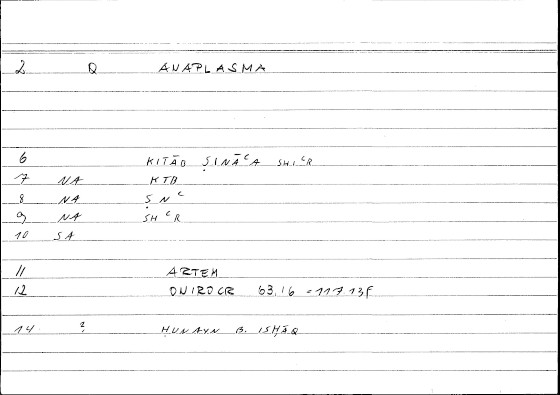 2 Q ANAPLASMA
6 KITĀB ṢINĀᶜA SHIᶜR
7 NA KTB
8 NA ṢNᶜ
9 NA SHᶜR
10 SA
11 ARTEM
12 ONIROCR 63.16 = 117 13F
14 ? ḤUNAYN B. ISḤĀQ